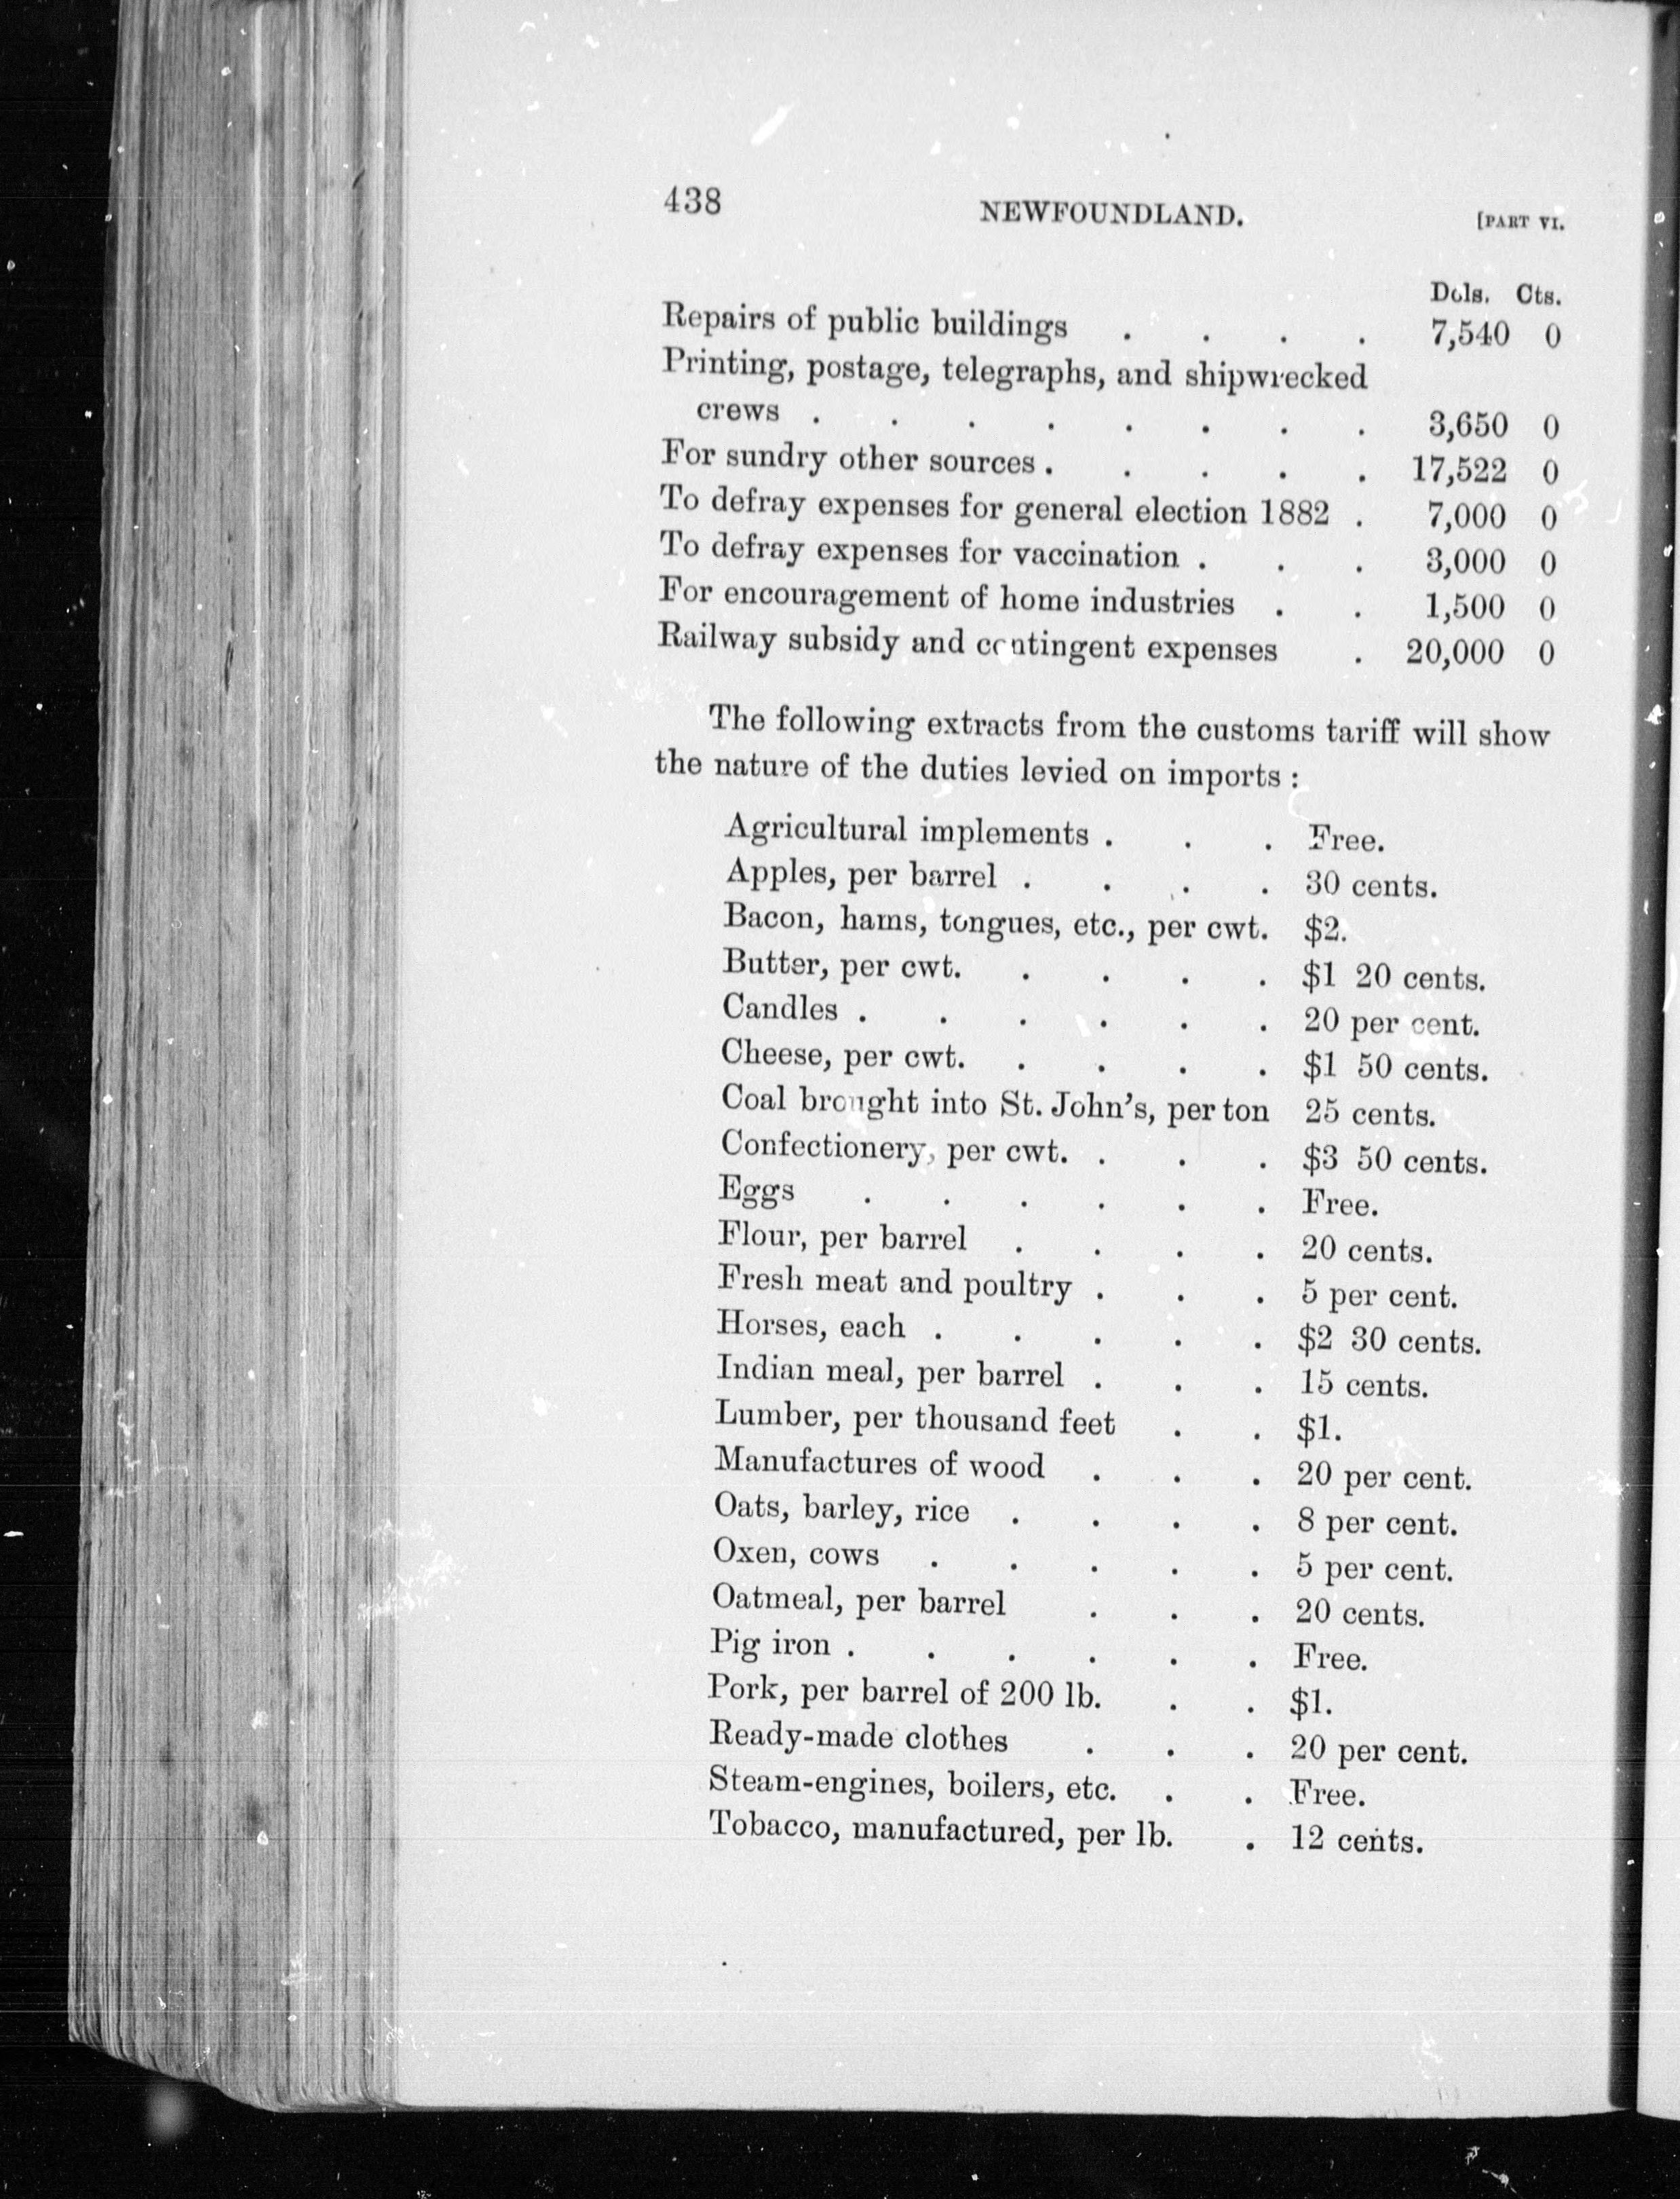 438 NEWFOUNDLAND. [PART VI.
Dols. Cts.
Repairs of public buildings . . . . 7,540 0
Printing, postage, telegraphs, and shipwrecked
crews . . . . . . . . 3,650 0
For sundry other sources . . . . . 17,522 0
To defray expenses for general election 1882 . 7,000 0
To defray expenses for vaccination . . . 3,000 0
For encouragement of home industries . . 1,500 0
Railway subsidy and contingent expenses . 20,000 0
The following extracts from the customs tariff will show
the nature of the duties levied on imports :
Agricultural implements . . . Free.
Apples, per barrel . . . . 30 cents.
Bacon, hams, tongues, etc., per cwt. $2.
Butter, per cwt. . . . . $1 20 cents.
Candles . . . . . . 20 per cent.
Cheese, per cwt. . . . . $1 50 cents.
Coal brought into St. John's, per ton 25 cents.
Confectionery, per cwt. . . . $3 50 cents.
Eggs . . . . . . Free.
Flour, per barrel . . . . 20 cents.
Fresh meat and poultry . . . 5 per cent.
Horses, each . . . . . $2 30 cents.
Indian meal, per barrel . . . 15 cents.
Lumber, per thousand feet . . $1.
Manufactures of wood . . . 20 per cent.
Oats, barley, rice . . . . 8 per cent.
Oxen, cows . . . . . 5 per cent.
Oatmeal, per barrel . . . 20 cents.
Pig iron . . . . . . Free.
Pork, per barrel of 200 lb. . . $1.
Ready-made clothes . . . 20 per cent.
Steam-engines, boilers, etc. . . Free.
Tobacco, manufactured, per lb. . 12 cents.